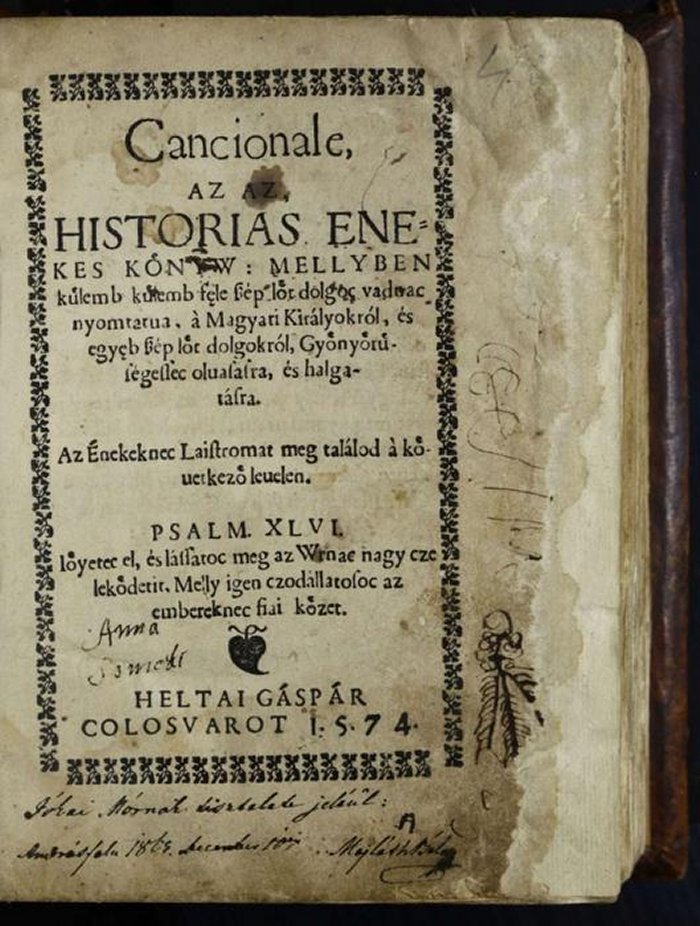 Cancionale,
AZ AZ,
HISTORIAS ENE-
KES KÖNYW: MELLYBEN
kűlemb kűlemb féle ſzép lőt dolgoc vadnac
nyomtatua, à Magyari Királyokról, és
egyęb ſzép lőt dolgokról, Gyönyörű-
ſégeſſec oluaſaſra, és halga-
táſra.
Az Énekeknec Laiſtromat meg találod à kö-
uetkező leuelen.
PSALM. XLVI.
Iőyetec el, és láſſatoc meg az Wrnac nagy cze
lekődetit. Melly igen czodállatoſoc az
embereknec fiai kőzőt.
Anna
HELTAI GÁSPÁR
COLOSVAROT 1.5.74.
Jókai Mórnak tisztelete jeléűl:
Andrásfalu december Majláth Béla